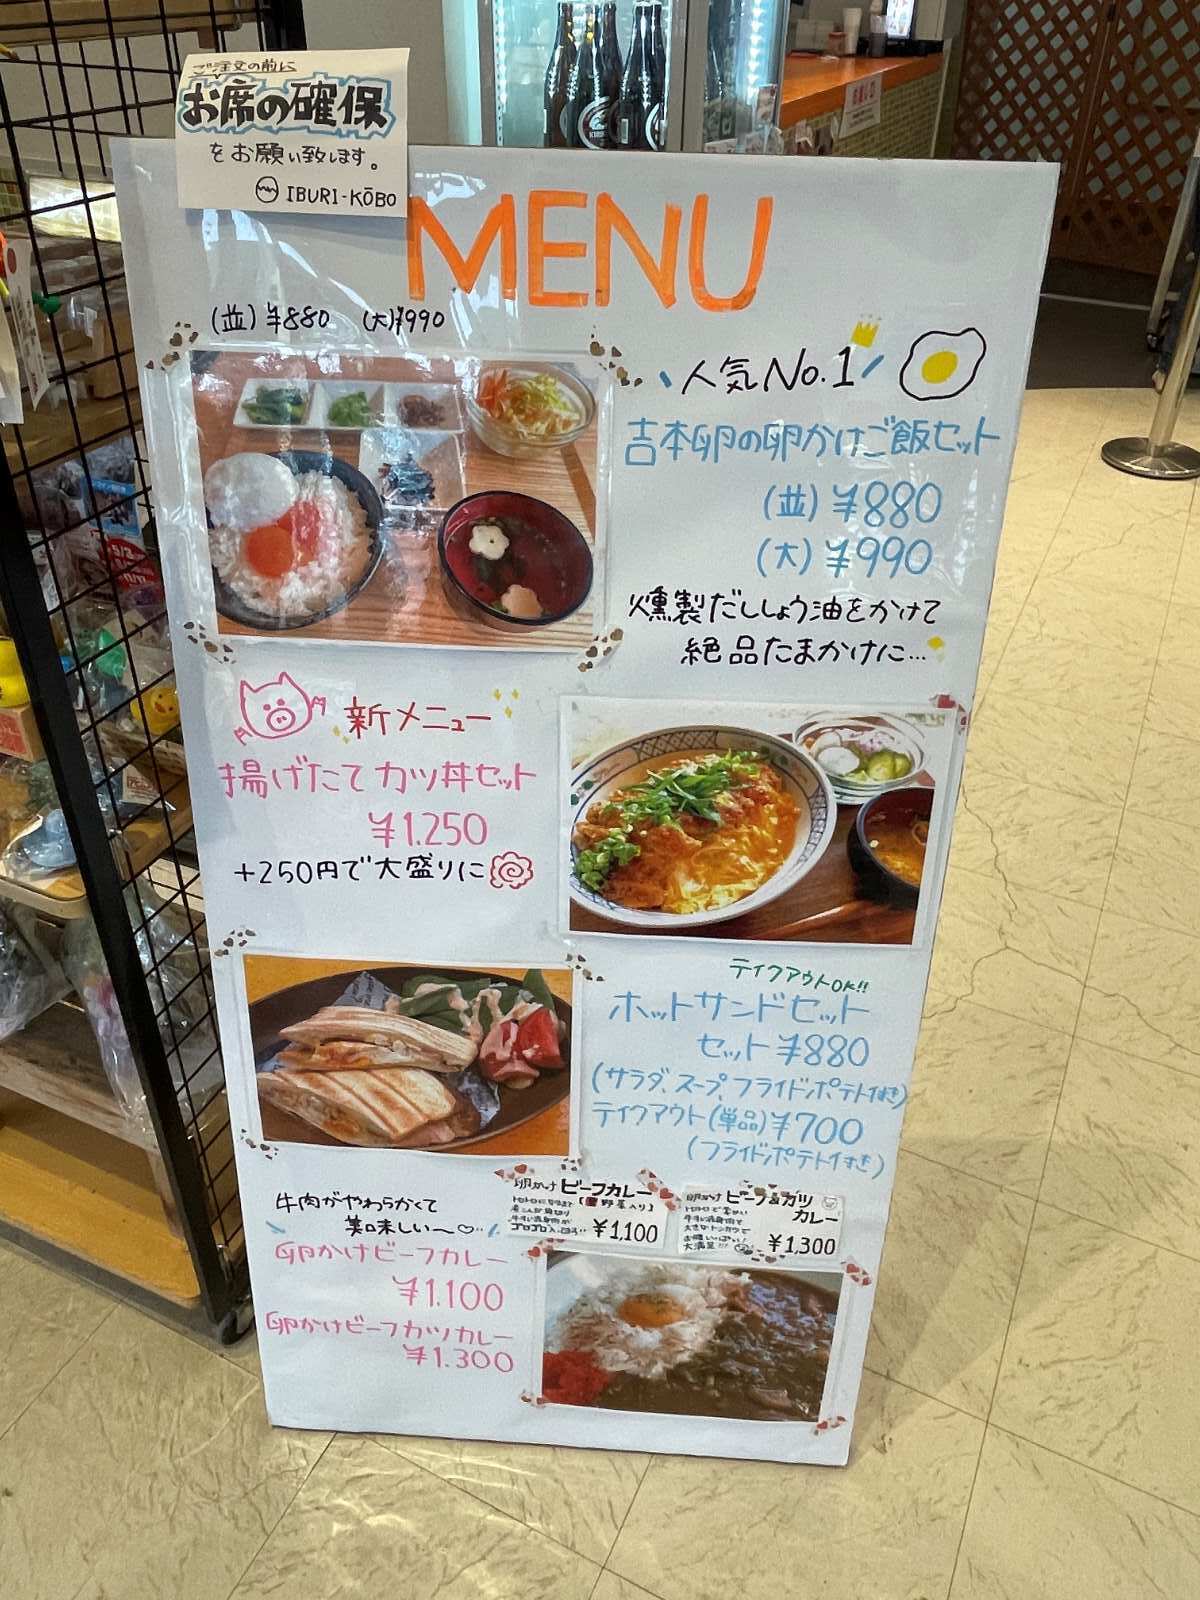 ご注文の前に
お席の確保
をお願い致します。
IBURI-KŌBO
MENU
(並)¥880 (大)¥990
人気No.1
吉本卵の卵かけご飯セット
(並)¥880
(大)¥990
燻製だししょう油をかけて
絶品たまかけに…
新メニュー
揚げたてカツ丼セット
¥1.250
+250円で大盛りに
テイクアウトOK!!
ホットサンドセット
セット¥880
(サラダ、スープ、フライドポテト付き)
テイクアウト(単品)¥700
(フライドポテト付き)
卵かけビーフカレー
¥1,100
卵かけビーフ&カツ
カレー
¥1,300
牛肉がやわらかくて
美味しい〜♡
卵かけビーフカレー
¥1.100
卵かけビーフカツカレー
¥1.300